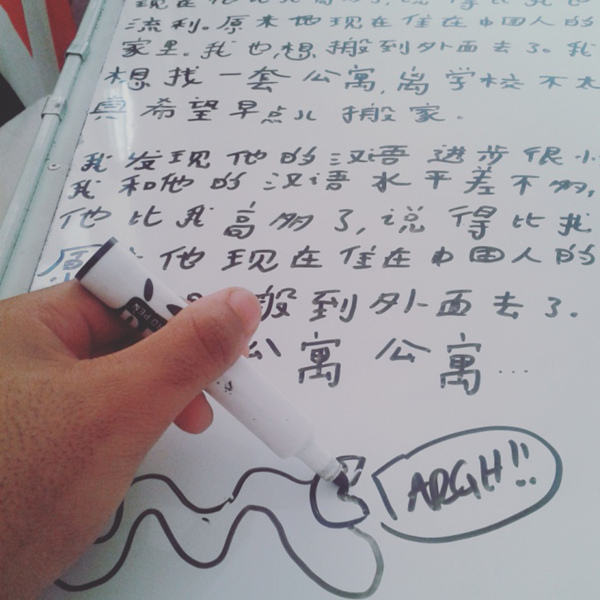 流利。原来他现在住在中国人的
家里。我也想搬到外面去了。我
想找一套公寓,离学校不太
真希望早点儿搬家。
我发现他的汉语进步很
我和他的汉语水平差不多,
他比我高多了,说得比我
原 他现在住在中国人的
搬到外面去了.
公寓 公寓...
PEN
ARGH!!